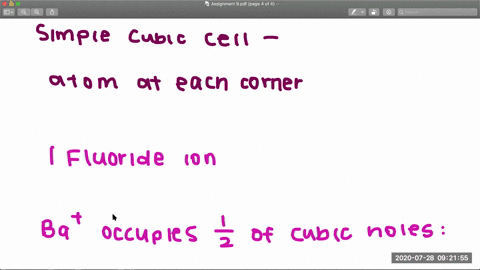 Assignment 9.pdf (page 4 of 4)
Simple cubic cell –
atom at each corner
1 Fluoride ion
Ba+ occupies 1/2 of cubic holes:
2020-07-28 09:21:55